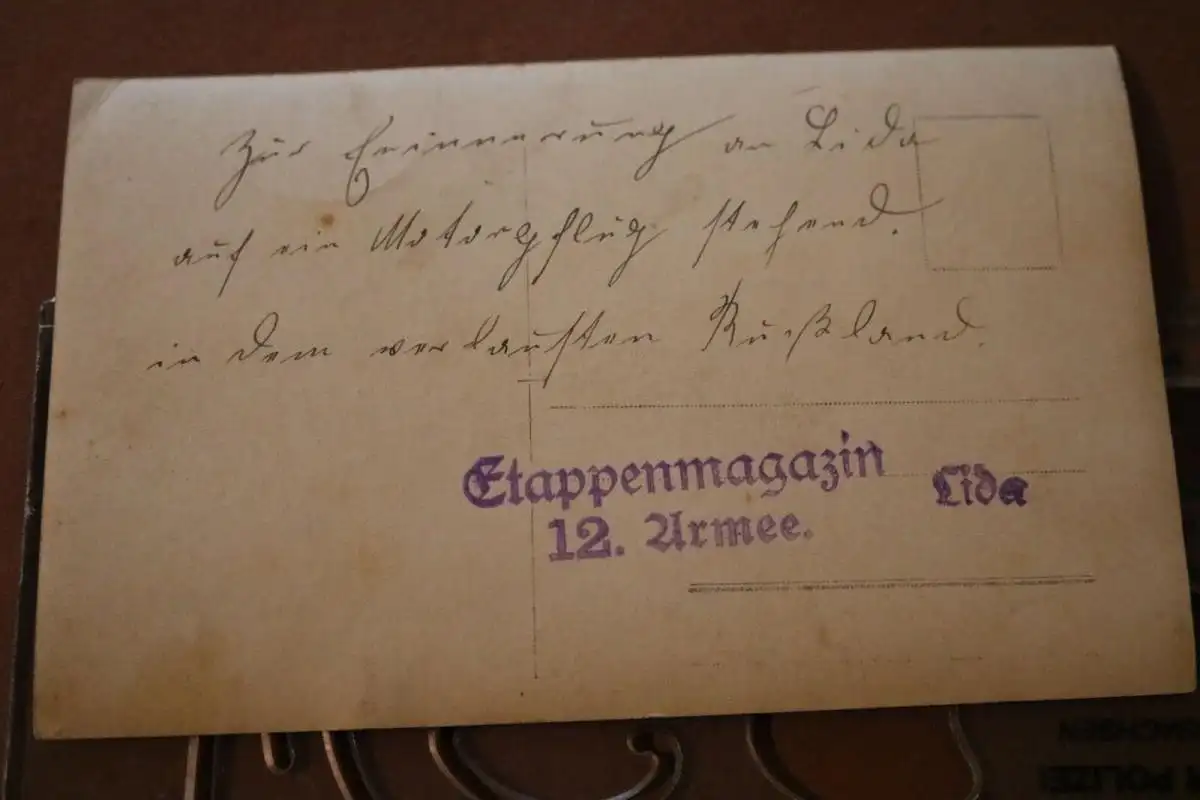 Zur Erinnerung an Lida
auf ein Motorpflug stehend.
in dem verlausten Rußland.
Etappenmagazin Lida
12. Armee.
SACHSEN
POLIZEI